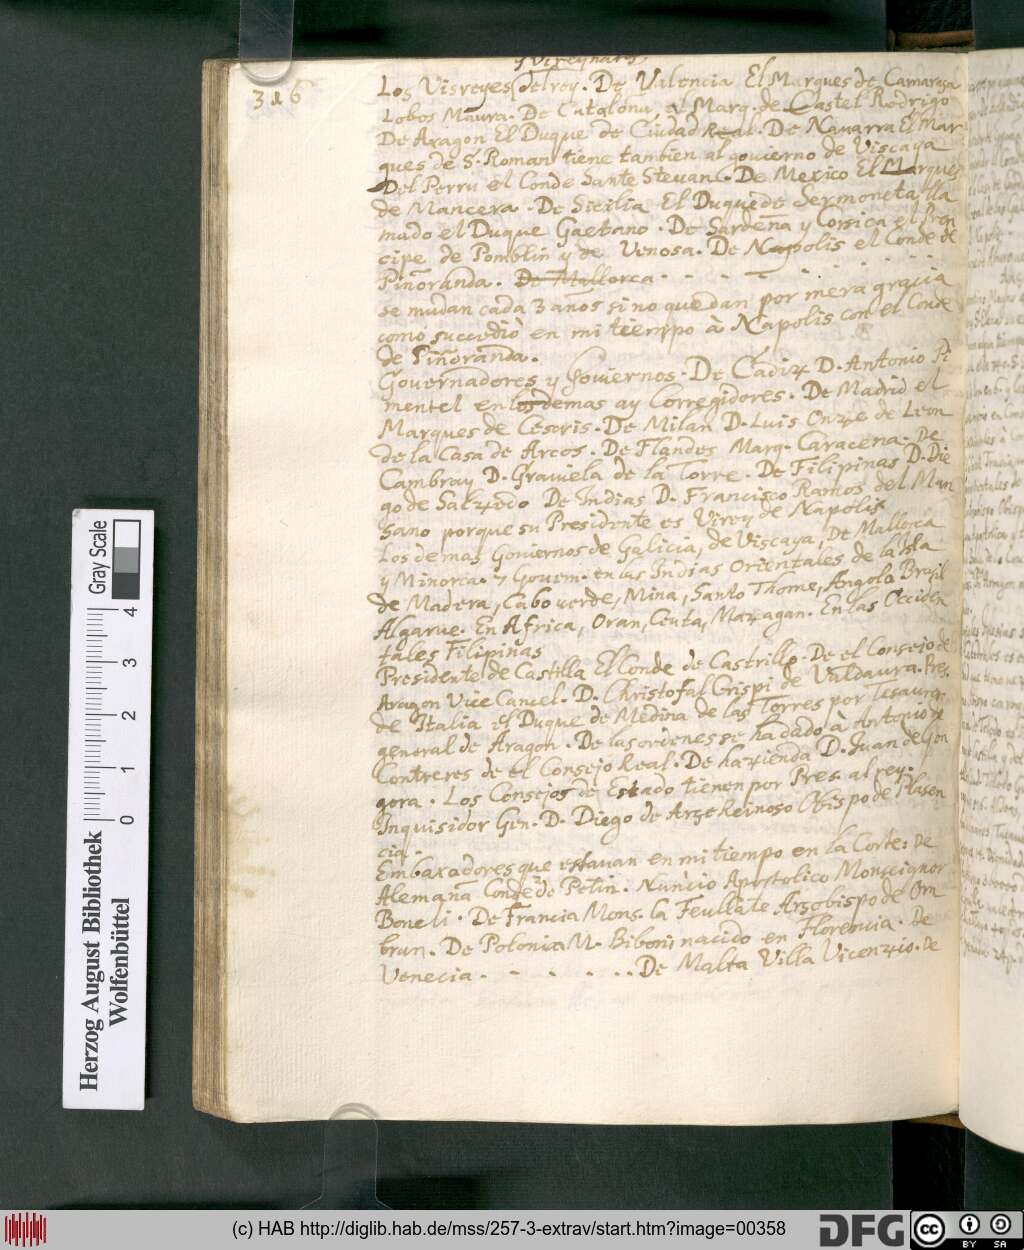 316
Los Visreyes del rey. De Valencia El Marques de Camarasa
Lobos Maura. De Catolonu, al Marq. de Castel Rodrigo
De Aragon El Duque de Ciudad Real. De Nauarra El Mar
ques de S. Roman tiene tambien al gouierno de Viscaya
Del Perru el Conde Sante Stevan. De Mexico El Marques
de Mancera. De Sicilia El Duque de Sermoneta lla
mado el Duque Gaetano. De Sardeña y Corsica el Prin
cipe de Pomblin y de Venosa. De Napolis el Conde de
Piñoranda. De Mallorca . . . . . . . . .
se mudan cada 3 años si no quedan por mera gracia
como succediò en mi tiempo à Napolis con el Conde
de Piñoranda.
Gouernadores y Gouiernos. De Cadiz D. Antonio Pi
mentel en los demas ay Corregidores. De Madrid el
Marques de Cesoris. De Milan D. Luis Onze de Leon
de la Casa de Arcos. De Flandes Marq. Caracena. De
Cambray D. Grauiela de la Torre. De Filipinas D. Die
go de Salzedo De Indias D. Francisco Ramos del Man
sano porque su Presidente es Virey de Napolis
Los demas Gouiernos de Galicia, de Viscaya, De Mallorca
y Minorca. 7 Gouern. en las Indias Orientales de la Isla
de Madera, Cabo uerde, Mina, Santo Thome, Angola Brasil
Algarue. En Africa, Oran, Ceuta, Mazagan. En las Occiden
tales Filipinas
Presidente de Castilla El Conde de Castrillo. De el Consejo de
Aragon Vice Cancel. D. Christofal Crispi de Valdaura. Pres.
de Italia el Duque de Medina de las Torres por Tesaurer
general de Aragon. De las ordenes se ha dado à Antonio de
Contreres de el Consejo Real. De hazienda D. Juan de Gon
gora. Los Consejos de Estado tienen por Pres. al rey.
Inquisidor Gen. D. Diego de Arze Reinoso Obispo de Plasen
cia.
Embaxadores que estauan en mi tiempo en la Corte: De
Alemaña Conde de Petin. Nuncio Apostolico Monseignor
Boneli. De Francia Mons. la Feullate Arzobispo de Am
brun. De Polonia M. Biboni nacido en Florencia. De
Venecia. . . . . . . . De Malta Villa Vicenzio. De
Herzog August Bibliothek
Wolfenbüttel
0 1 2 3 4
Gray Scale
(c) HAB http://diglib.hab.de/mss/257-3-extrav/start.htm?image=00358
DFG
cc BY SA